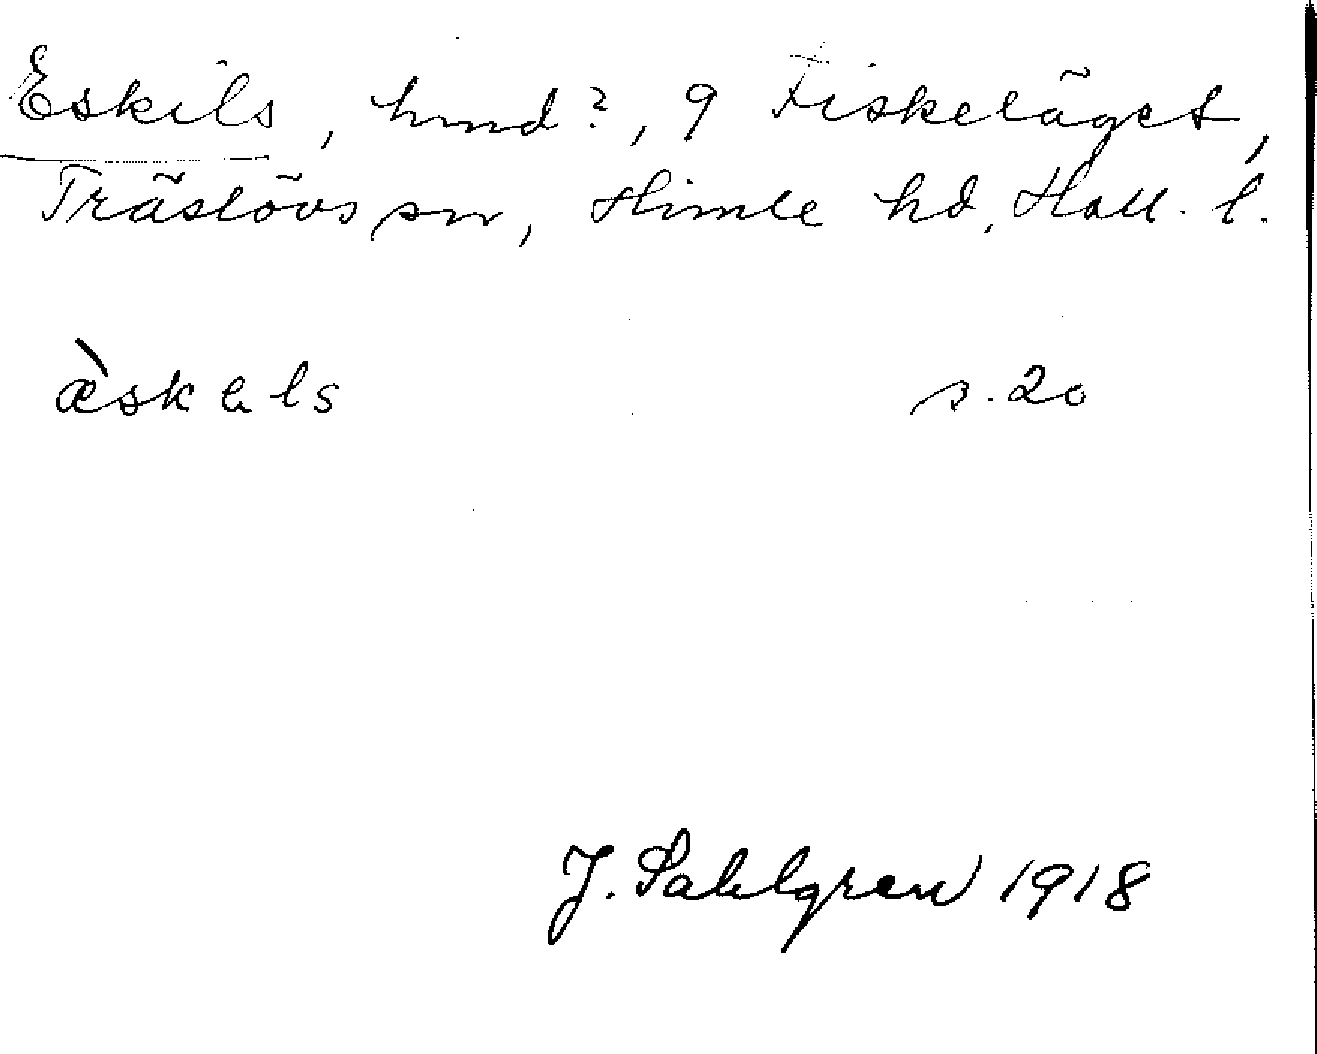 Eskils, hmd?, 9 Fiskeläget,
Träslövs sn, Himle hd, Hall. l.
æ̀skəls s. 20
J. Sahlgren 1918